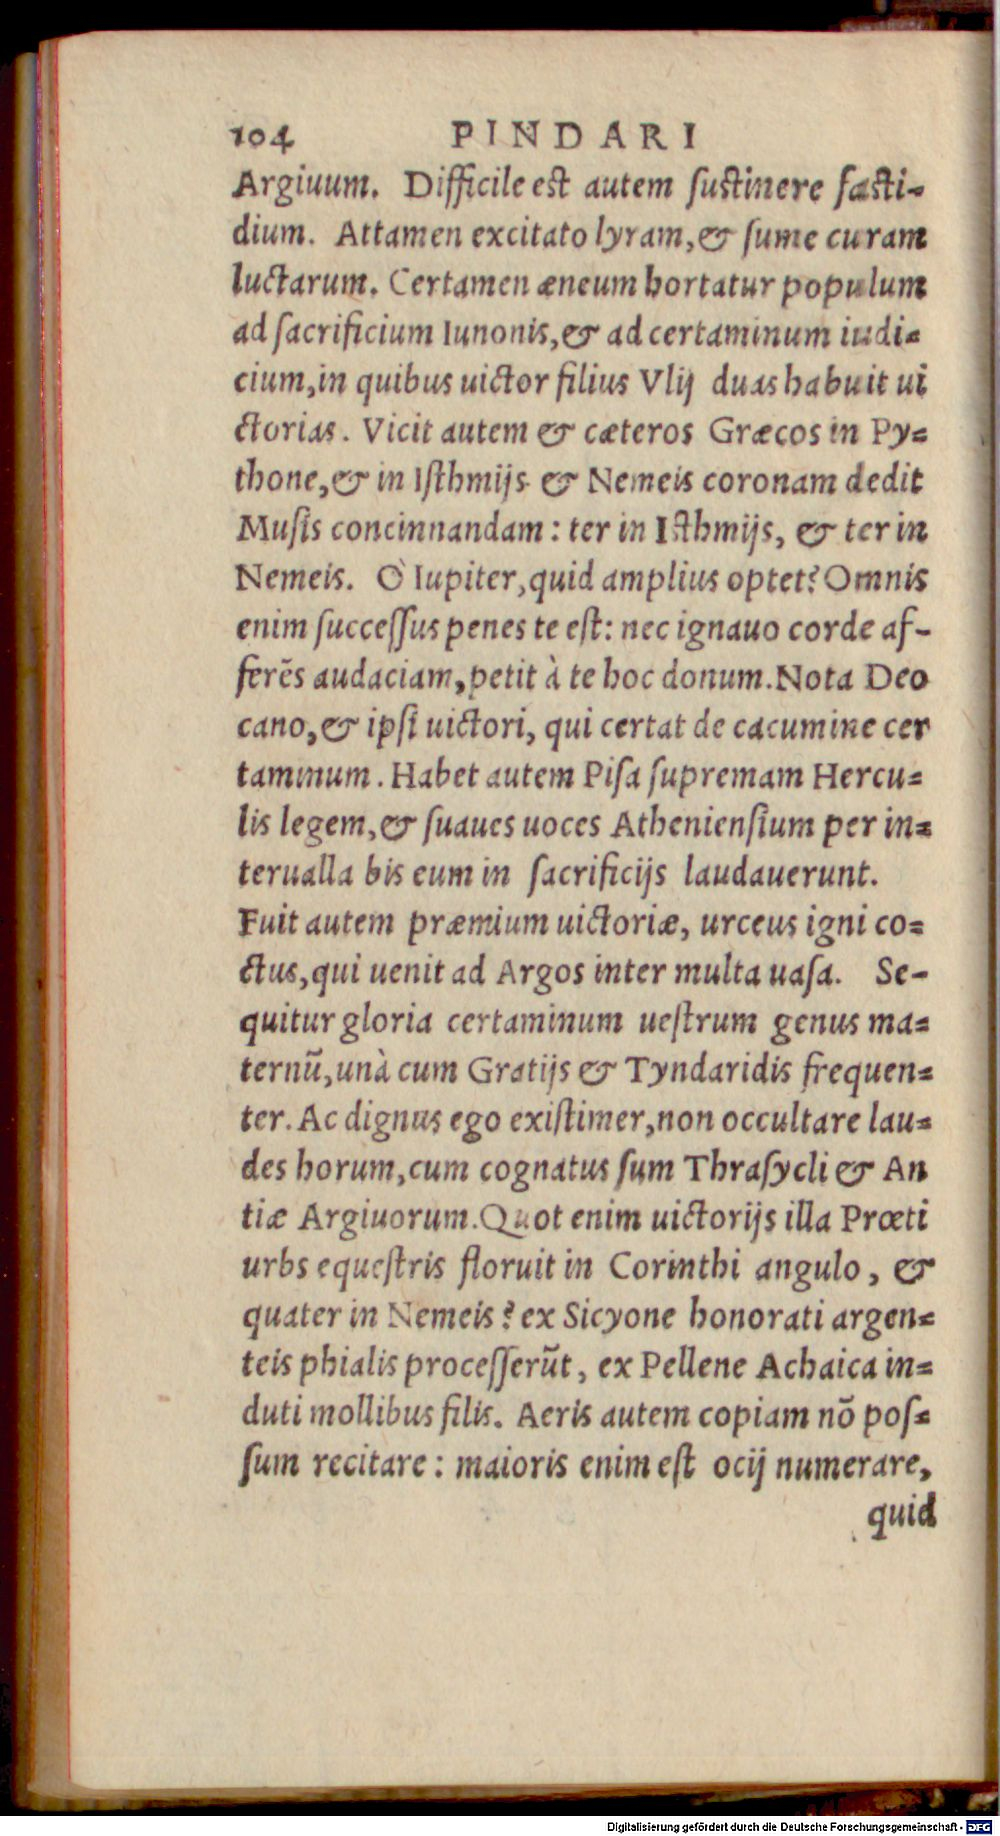 104 PINDARI
Argiuum. Difficile est autem sustinere fasti-
dium. Attamen excitato lyram, & sume curam
luctarum. Certamen æneum hortatur populum
ad sacrificium Iunonis, & ad certaminum iudi-
cium, in quibus uictor filius Vlij duas habuit ui
ctorias. Vicit autem & cæteros Græcos in Py-
thone, & in Isthmijs & Nemeis coronam dedit
Musis concinnandam: ter in Isthmijs, & ter in
Nemeis. Ò Iupiter, quid amplius optet? Omnis
enim successus penes te est: nec ignauo corde af-
ferẽs audaciam, petit à te hoc donum. Nota Deo
cano, & ipsi uictori, qui certat de cacumine cer
taminum. Habet autem Pisa supremam Hercu-
lis legem, & suaues uoces Atheniensium per in-
terualla bis eum in sacrificijs laudauerunt.
Fuit autem præmium uictoriæ, urceus igni co-
ctus, qui uenit ad Argos inter multa uasa. Se-
quitur gloria certaminum uestrum genus ma-
ternũ, unà cum Gratijs & Tyndaridis frequen-
ter. Ac dignus ego existimer, non occultare lau-
des horum, cum cognatus sum Thrasycli & An
tiæ Argiuorum. Quot enim uictorijs illa Prœti
urbs equestris floruit in Corinthi angulo, &
quater in Nemeis? ex Sicyone honorati argen-
teis phialis processerũt, ex Pellene Achaica in-
duti mollibus filis. Aeris autem copiam nõ pos-
sum recitare: maioris enim est ocij numerare,
quid
Digitalisierung gefördert durch die Deutsche Forschungsgemeinschaft - DFG